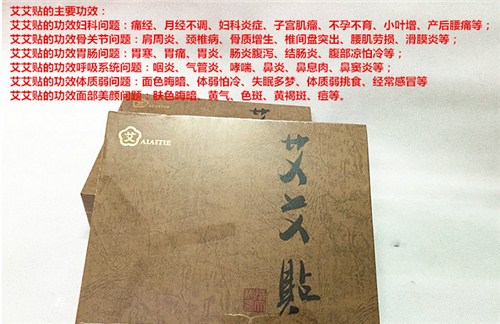 艾艾贴的主要功效：
艾艾贴的功效妇科问题：痛经、月经不调、妇科炎症、子宫肌瘤、不孕不育、小叶增、产后腰痛等；
艾艾贴的功效骨关节问题：肩周炎、颈椎病、骨质增生、椎间盘突出、腰肌劳损、滑膜炎等；
艾艾贴的功效胃肠问题：胃寒、胃痛、胃炎、肠炎腹泻、结肠炎、腹部凉怕冷等；
艾艾贴的功效呼吸系统问题：咽炎、气管炎、哮喘、鼻炎、鼻息肉、鼻窦炎等；
艾艾贴的功效体质弱问题：面色晦暗、体弱怕冷、失眠多梦、体质弱挑食、经常感冒等
艾艾贴的功效面部美颜问题：肤色晦暗、黄气、色斑、黄褐斑、痘等。
艾 AIAITIE
艾艾貼